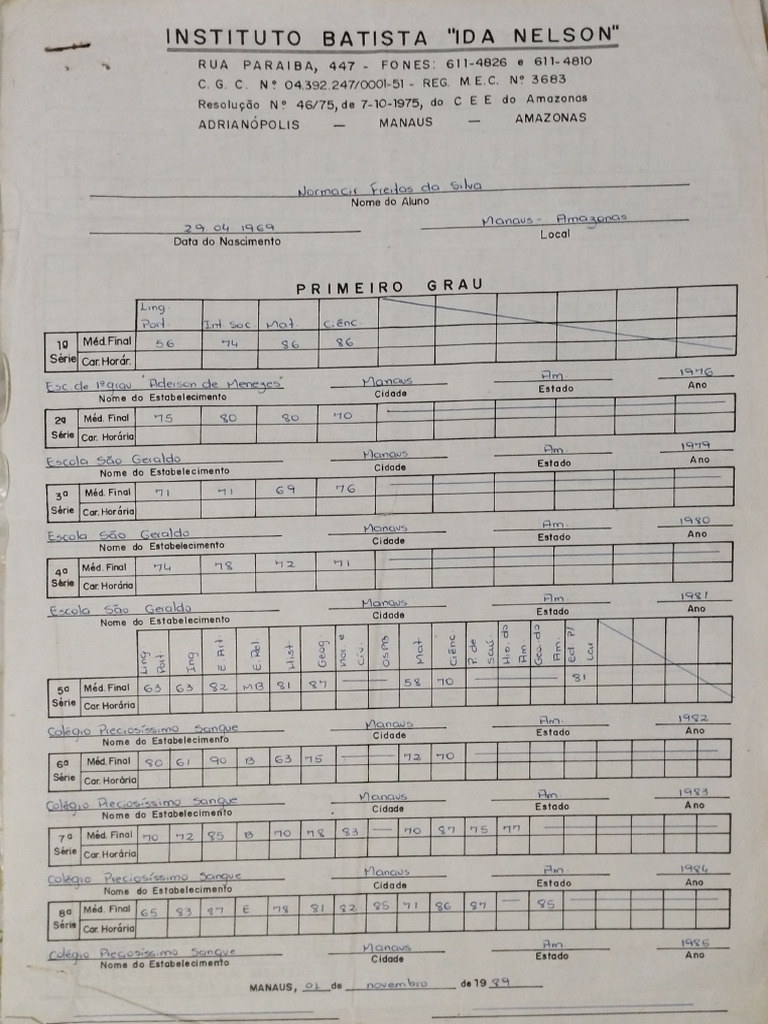 INSTITUTO BATISTA "IDA NELSON"
RUA PARAIBA, 447 - FONES: 611-4826 e 611-4810
C. G. C. Nº 04.392.247/0001-51 - REG. M.E.C. Nº 3683
Resolução Nº 46/75, de 7-10-1975, do C E E do Amazonas
ADRIANÓPOLIS — MANAUS — AMAZONAS
Normacir Freitas da Silva
Nome do Aluno
29 04 1969 Manaus - Amazonas
Data do Nascimento Local
PRIMEIRO GRAU
Ling. Port. Int Soc Mat. Ciênc.
1ª Série Méd. Final 56 74 86 86
Car. Horár.
Esc de 1º grau "Aderson de Menezes" Manaus Am. 1976
Nome do Estabelecimento Cidade Estado Ano
2ª Série Méd. Final 75 80 80 70
Car. Horária
Escola São Geraldo Manaus Am. 1979
Nome do Estabelecimento Cidade Estado Ano
3ª Série Méd. Final 71 71 69 76
Car. Horária
Escola São Geraldo Manaus Am. 1980
Nome do Estabelecimento Cidade Estado Ano
4ª Série Méd. Final 74 78 72 71
Car. Horária
Escola São Geraldo Manaus Am. 1981
Nome do Estabelecimento Cidade Estado Ano
Ling Port. Ing E. Art. E. Rel. Hist. Geog Mor. e Civ. OSPB Mat Ciênc. P. de Saú. His. do Am. Geo. do Am. Ed P/ Lar
5ª Série Méd. Final 63 63 82 MB 81 87 — 58 70 — 81
Car. Horária
Colégio Preciosíssimo Sangue Manaus Am. 1982
Nome do Estabelecimento Cidade Estado Ano
6ª Série Méd. Final 80 61 90 B 63 75 — 72 70 —
Car. Horária
Colégio Preciosíssimo Sangue Manaus Am. 1983
Nome do Estabelecimento Cidade Estado Ano
7ª Série Méd. Final 70 72 85 B 70 78 83 — 70 87 75 77 —
Car. Horária
Colégio Preciosíssimo Sangue Manaus Am. 1984
Nome do Estabelecimento Cidade Estado Ano
8ª Série Méd. Final 65 83 87 E 78 81 82 85 71 86 87 — 85
Car. Horária
Colégio Preciosíssimo Sangue Manaus Am. 1985
Nome do Estabelecimento Cidade Estado Ano
MANAUS, 01 de novembro de 19 89